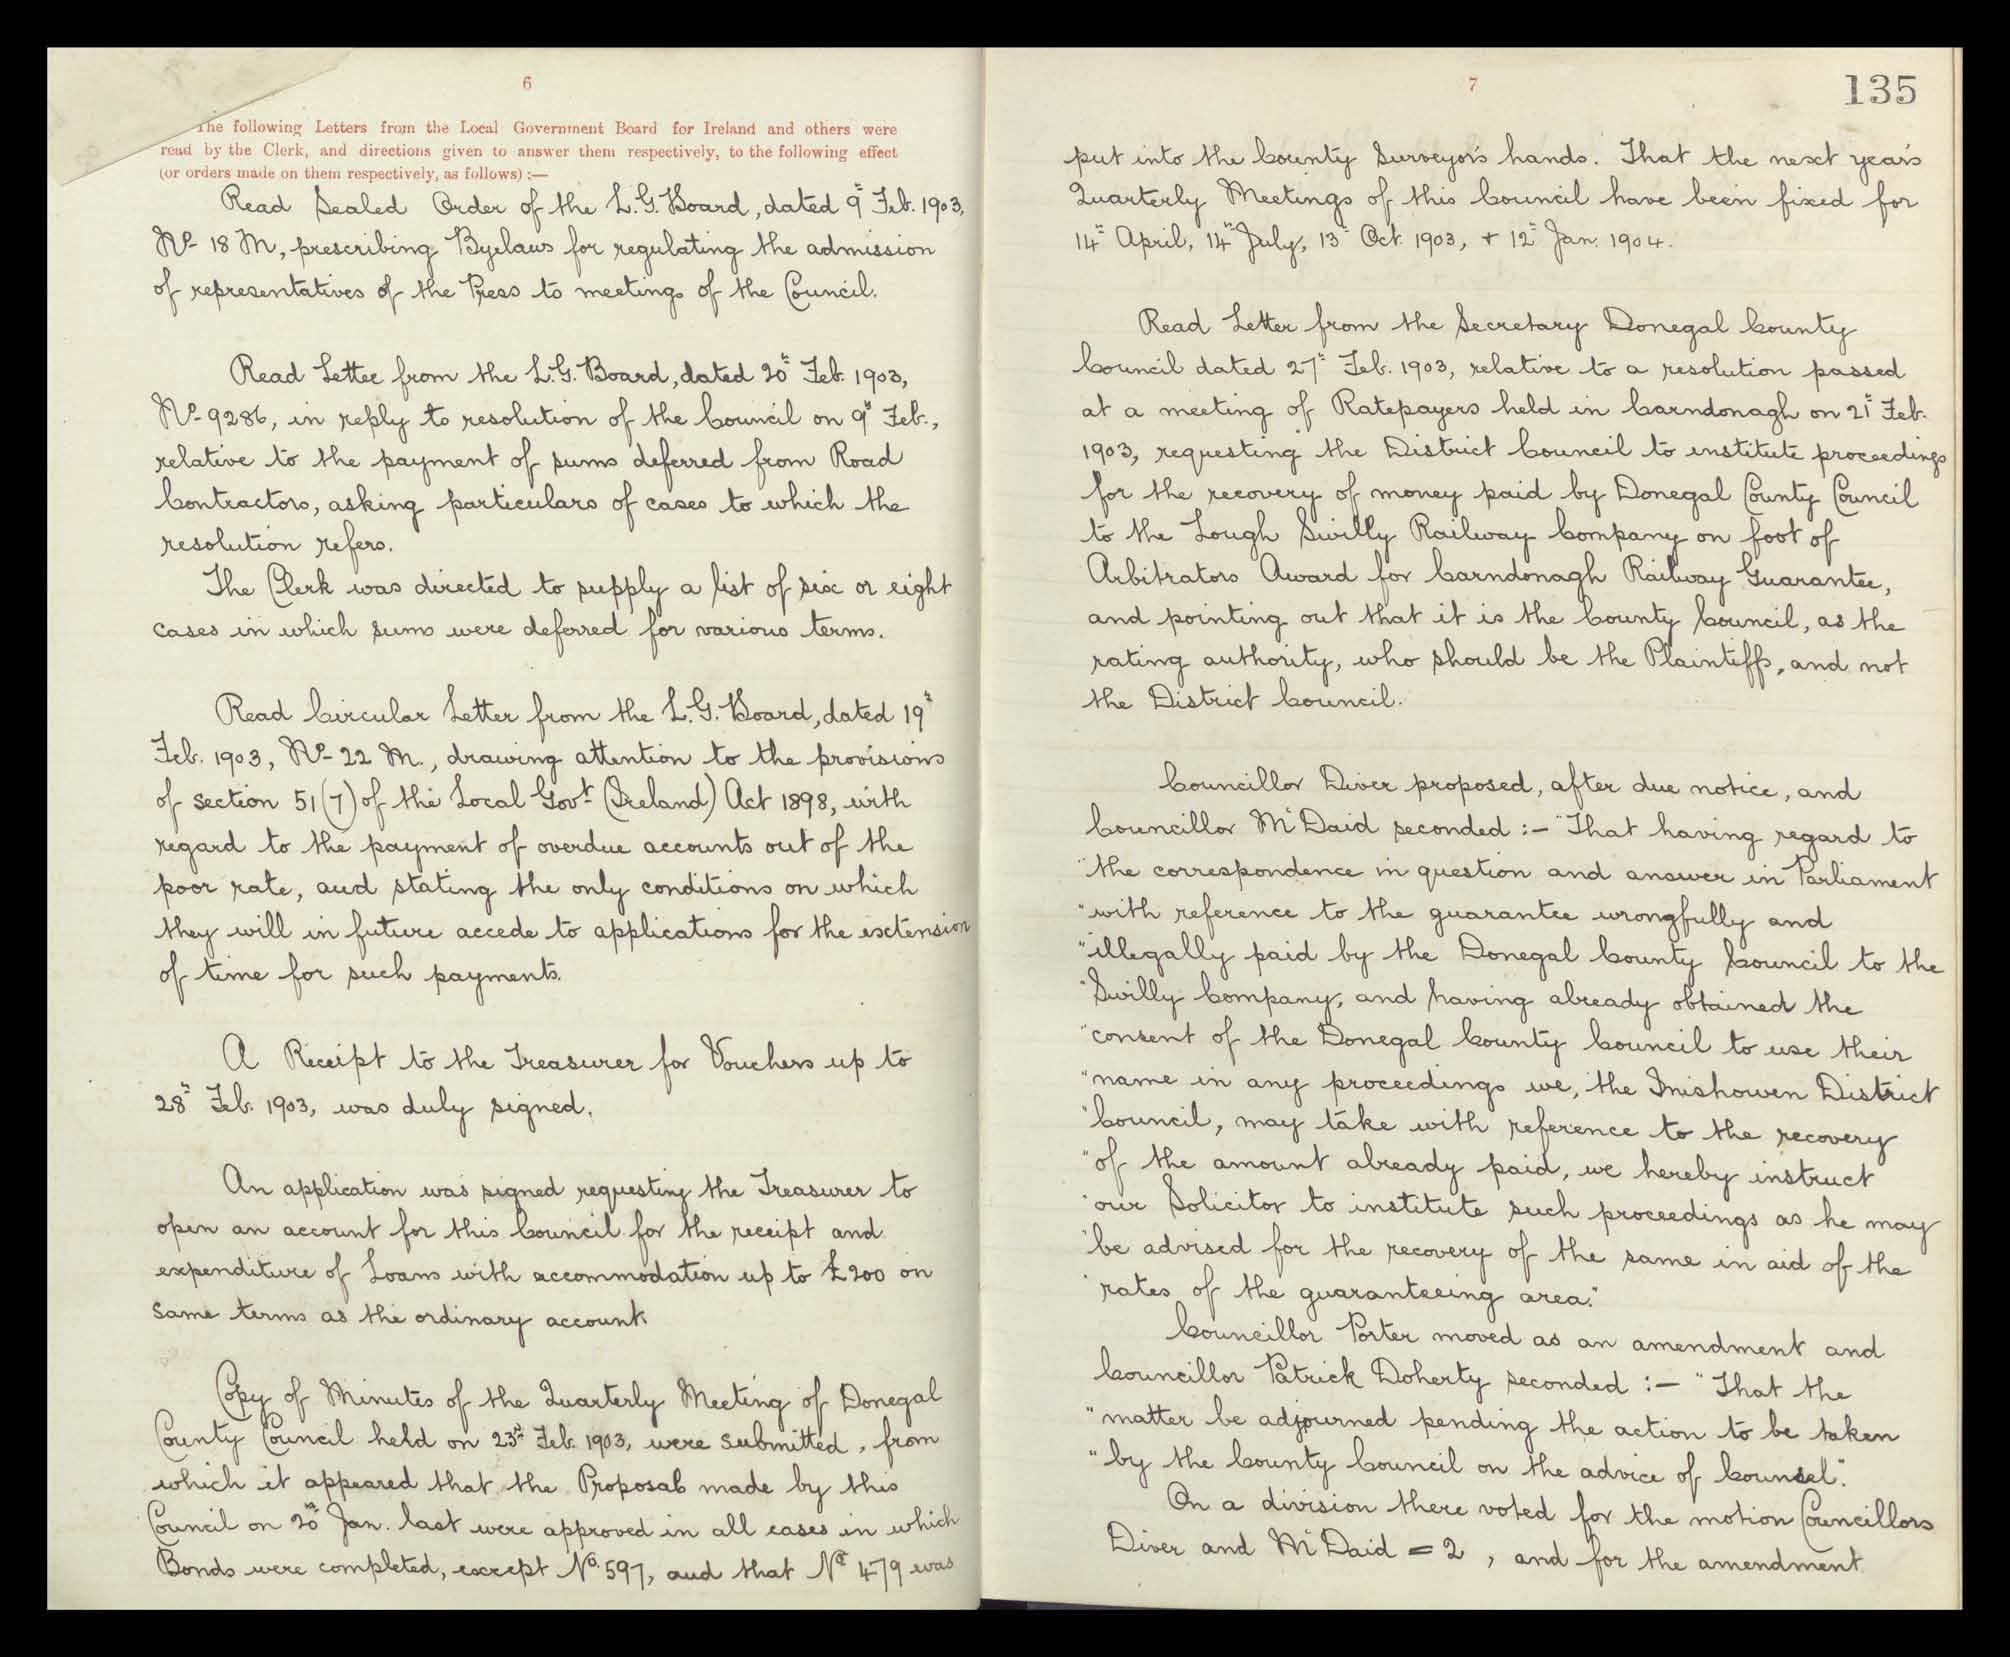 6
The following Letters from the Local Government Board for Ireland and others were
read by the Clerk, and directions given to answer them respectively, to the following effect
(or orders made on them respectively, as follows) :—
Read Sealed Order of the L.G. Board, dated 9th Feb. 1903,
No. 18 M, prescribing Byelaws for regulating the admission
of representatives of the Press to meetings of the Council.
Read Letter from the L.G. Board, dated 20th Feb. 1903,
No. 9286, in reply to resolution of the Council on 9th Feb.,
relative to the payment of sums deferred from Road
Contractors, asking particulars of cases to which the
resolution refers.
The Clerk was directed to supply a list of six or eight
cases in which sums were deferred for various terms.
Read Circular Letter from the L.G. Board, dated 19th
Feb. 1903, No. 22 M., drawing attention to the provisions
of section 51(7) of the Local Govt. (Ireland) Act 1898, with
regard to the payment of overdue accounts out of the
poor rate, and stating the only conditions on which
they will in future accede to applications for the extension
of time for such payments.
A Receipt to the Treasurer for Vouchers up to
28th Feb. 1903, was duly signed.
An application was signed requesting the Treasurer to
open an account for this Council for the receipt and
expenditure of Loans with accommodation up to £200 on
same terms as the ordinary account.
Copy of Minutes of the Quarterly Meeting of Donegal
County Council held on 23rd Feb. 1903, were submitted, from
which it appeared that the Proposals made by this
Council on 20th Jan. last were approved in all cases in which
Bonds were completed, except No. 597, and that No. 479 was
7
135
put into the County Surveyor's hands. That the next year's
Quarterly Meetings of this Council have been fixed for
14th April, 14th July, 13th Oct. 1903, + 12th Jan. 1904.
Read Letter from the Secretary Donegal County
Council dated 27th Feb. 1903, relative to a resolution passed
at a meeting of Ratepayers held in Carndonagh on 21st Feb.
1903, requesting the District Council to institute proceedings
for the recovery of money paid by Donegal County Council
to the Lough Swilly Railway Company on foot of
Arbitrators Award for Carndonagh Railway Guarantee,
and pointing out that it is the County Council, as the
rating authority, who should be the Plaintiffs, and not
the District Council.
Councillor Diver proposed, after due notice, and
Councillor McDaid seconded :— "That having regard to
"the correspondence in question and answer in Parliament
"with reference to the guarantee wrongfully and
"illegally paid by the Donegal County Council to the
"Swilly Company, and having already obtained the
"consent of the Donegal County Council to use their
"name in any proceedings we, the Inishowen District
"Council, may take with reference to the recovery
"of the amount already paid, we hereby instruct
"our Solicitor to institute such proceedings as he may
"be advised for the recovery of the same in aid of the
"rates of the guaranteeing area."
Councillor Porter moved as an amendment and
Councillor Patrick Doherty seconded :— "That the
"matter be adjourned pending the action to be taken
"by the County Council on the advice of Counsel".
On a division there voted for the motion Councillors
Diver and McDaid = 2, and for the amendment